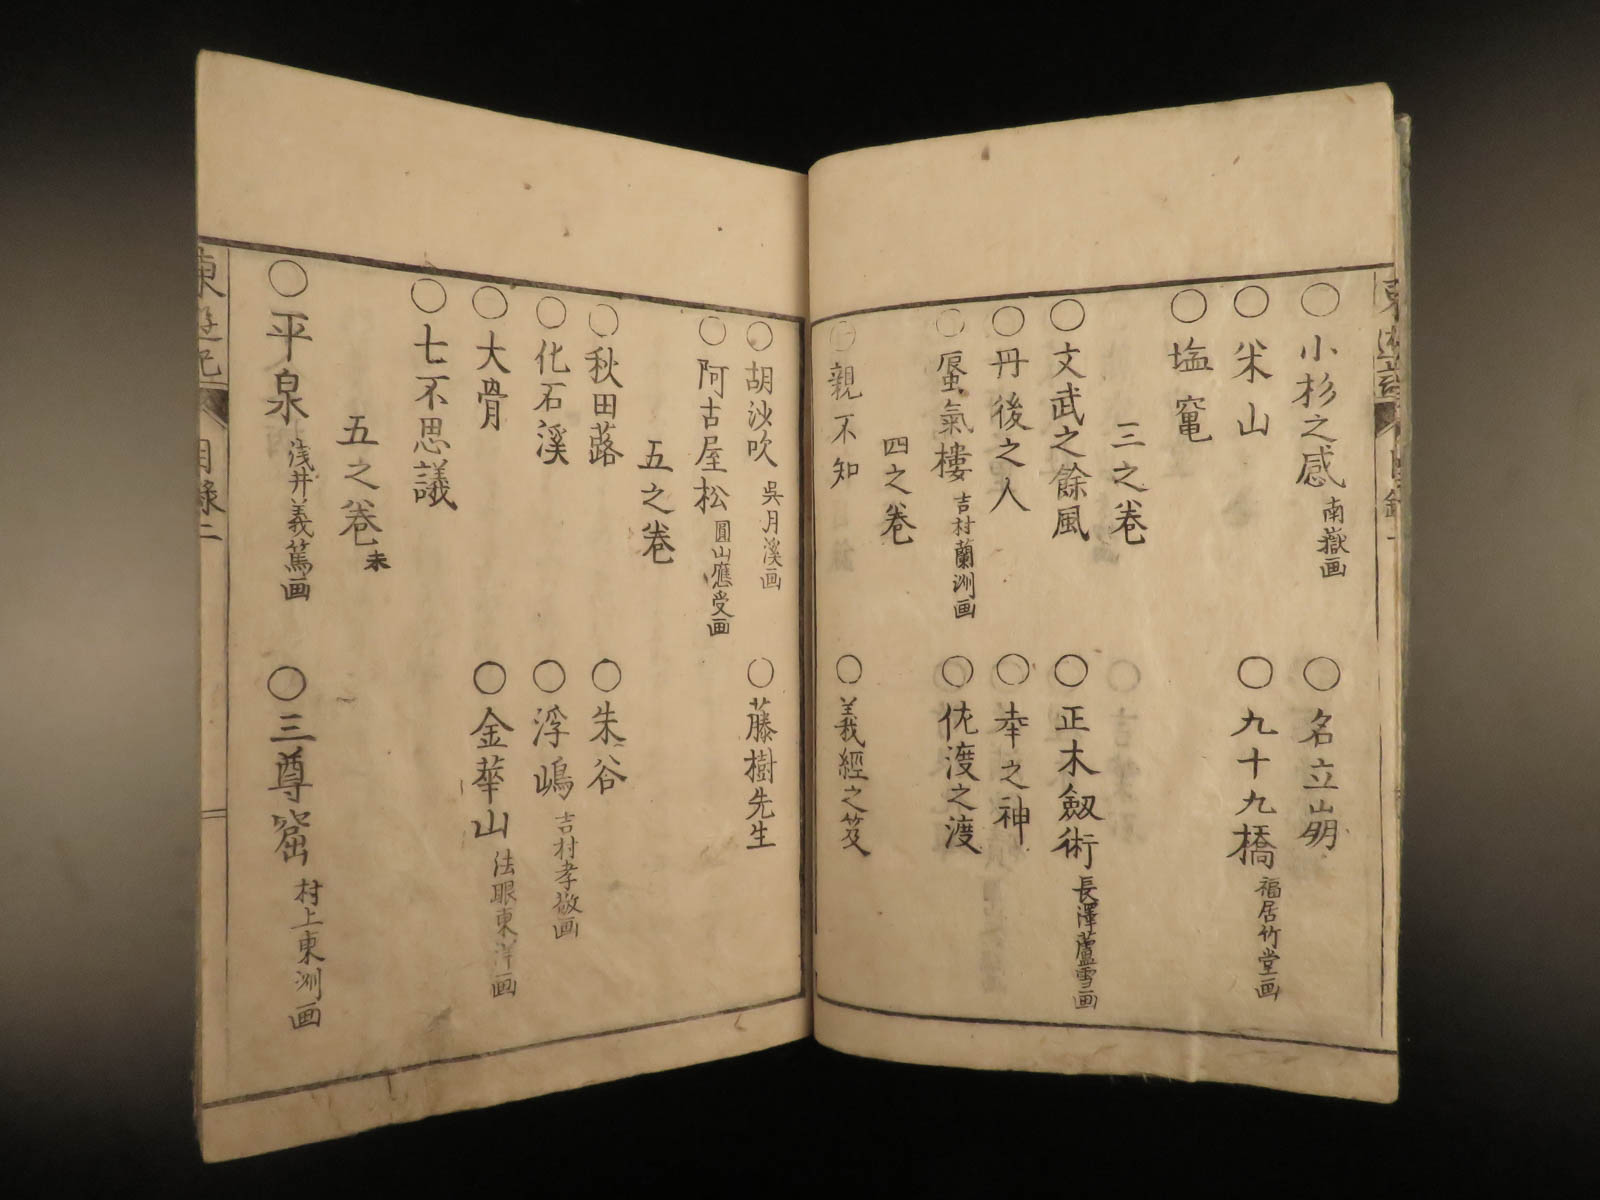 東遊記 目録一
○小杉之感 南嶽画 ○名立崩
○米山 ○九十九橋 福居竹堂画
○塩竃
三之巻
○文武之餘風 ○正木劔術 長澤蘆雪画
○丹後之人 ○幸之神
○蜃氣樓 吉村蘭洲画 ○佐渡之渡
四之巻
○親不知 ○義經之笈
○胡沙吹 吳月溪画 ○藤樹先生
○阿古屋松 圓山應受画
五之巻
○秋田蕗 ○朱谷
○化石溪 ○浮嶋 吉村孝敬画
○大骨 ○金華山 法眼東洋画
○七不思議
五之巻末
○平泉 浅井義篤画 ○三尊窟 村上東洲画
東遊記 目錄二